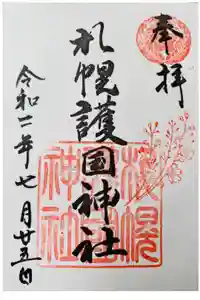 奉拝
札幌護国神社
令和二年七月廿五日
札幌
護国
神社